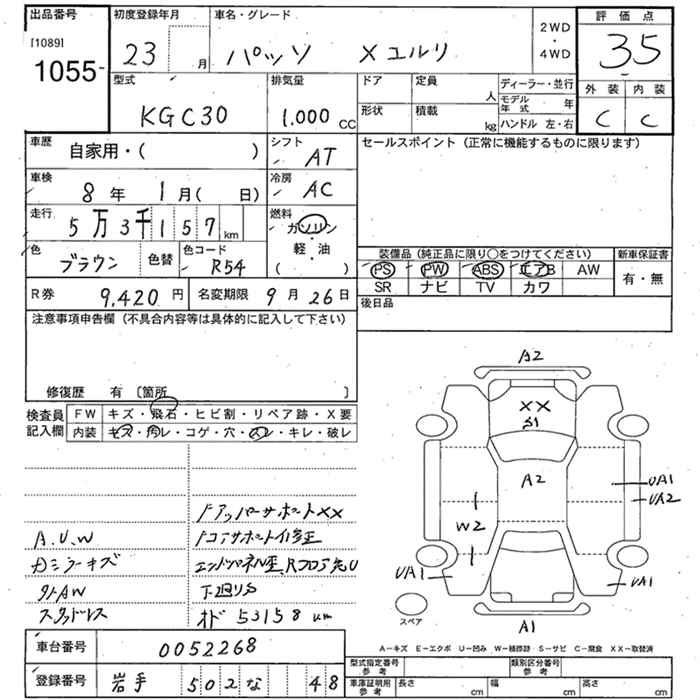 出品番号 初度登録年月 車名・グレード 2WD・4WD 評価点
[1089] 1055- 23 月 パッソ X ユルリ 35
型式 排気量 ドア 定員 人 ディーラー・並行 外装 内装
KGC30 1.000 CC 形状 積載 kg モデル年式 年 C C
ハンドル 左・右
車歴 自家用・( ) シフト AT セールスポイント(正常に機能するものに限ります)
車検 8年 1月( 日) 冷房 AC
走行 5万3千157km 燃料 ガソリン・軽・油( )
色 ブラウン 色替 色コード R54
装備品(純正品に限り○をつけてください) 新車保証書
PS PW ABS エアB AW 有・無
SR ナビ TV カワ
R券 9,420円 名変期限 9月26日 後日品
注意事項申告欄(不具合内容等は具体的に記入して下さい)
修復歴 有 〔箇所 〕
検査員記入欄 FW キズ・飛石・ヒビ割・リペア跡・X要
内装 キズ・汚レ・コゲ・穴・スレ・キレ・破レ
A2
XX
S1
A2
UA1
UA2
W2
UA1
UA1
A1
スペア
FアッパーサポートXX
A.U.W Fコアサポート修正
スタッドレス オド 53158km
A－キズ E－エクボ U－凹み W－補修跡 S－サビ C－腐食 XX－取替済
車台番号 0052268
登録番号 岩手 502 な 48
型式指定番号 参考 類別区分番号 参考
車庫証明用 参考 長さ cm 幅 cm 高さ cm